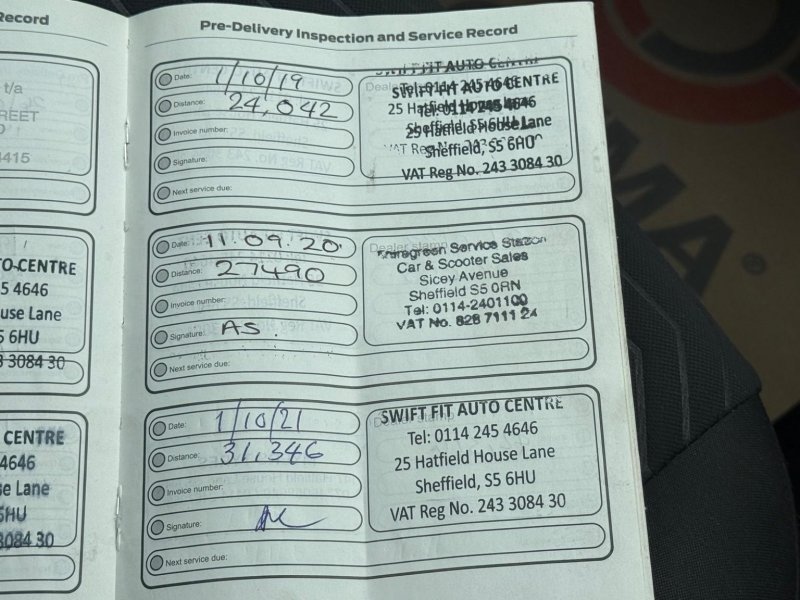 Record
t/a
REET
4415
TO-CENTRE
5 4646
use Lane
5 6HU
3 3084 30
CENTRE
4646
se Lane
6HU
3084 30
Pre-Delivery Inspection and Service Record
Date: 1/10/19
Distance: 24,042
Invoice number:
Signature:
Next service due:
SWIFT FIT AUTO CENTRE
Tel: 0114 245 4646
25 Hatfield House Lane
Sheffield, S5 6HU
VAT Reg No.
SWIFT FIT AUTO CENTRE
Tel: 0114 245 4646
25 Hatfield House Lane
Sheffield, S5 6HU
VAT Reg No. 243 3084 30
Date: 11.09.20.
Distance: 27490
Invoice number:
Signature: AS.
Next service due:
Dealer stamp
Service Station
Car & Scooter Sales
Sicey Avenue
Sheffield S5 0RN
Tel: 0114-2401100
VAT No. 828 7111 24
Date: 1/10/21
Distance: 31,346
Invoice number:
Signature:
Next service due:
SWIFT FIT AUTO CENTRE
Tel: 0114 245 4646
25 Hatfield House Lane
Sheffield, S5 6HU
VAT Reg No. 243 3084 30
MA